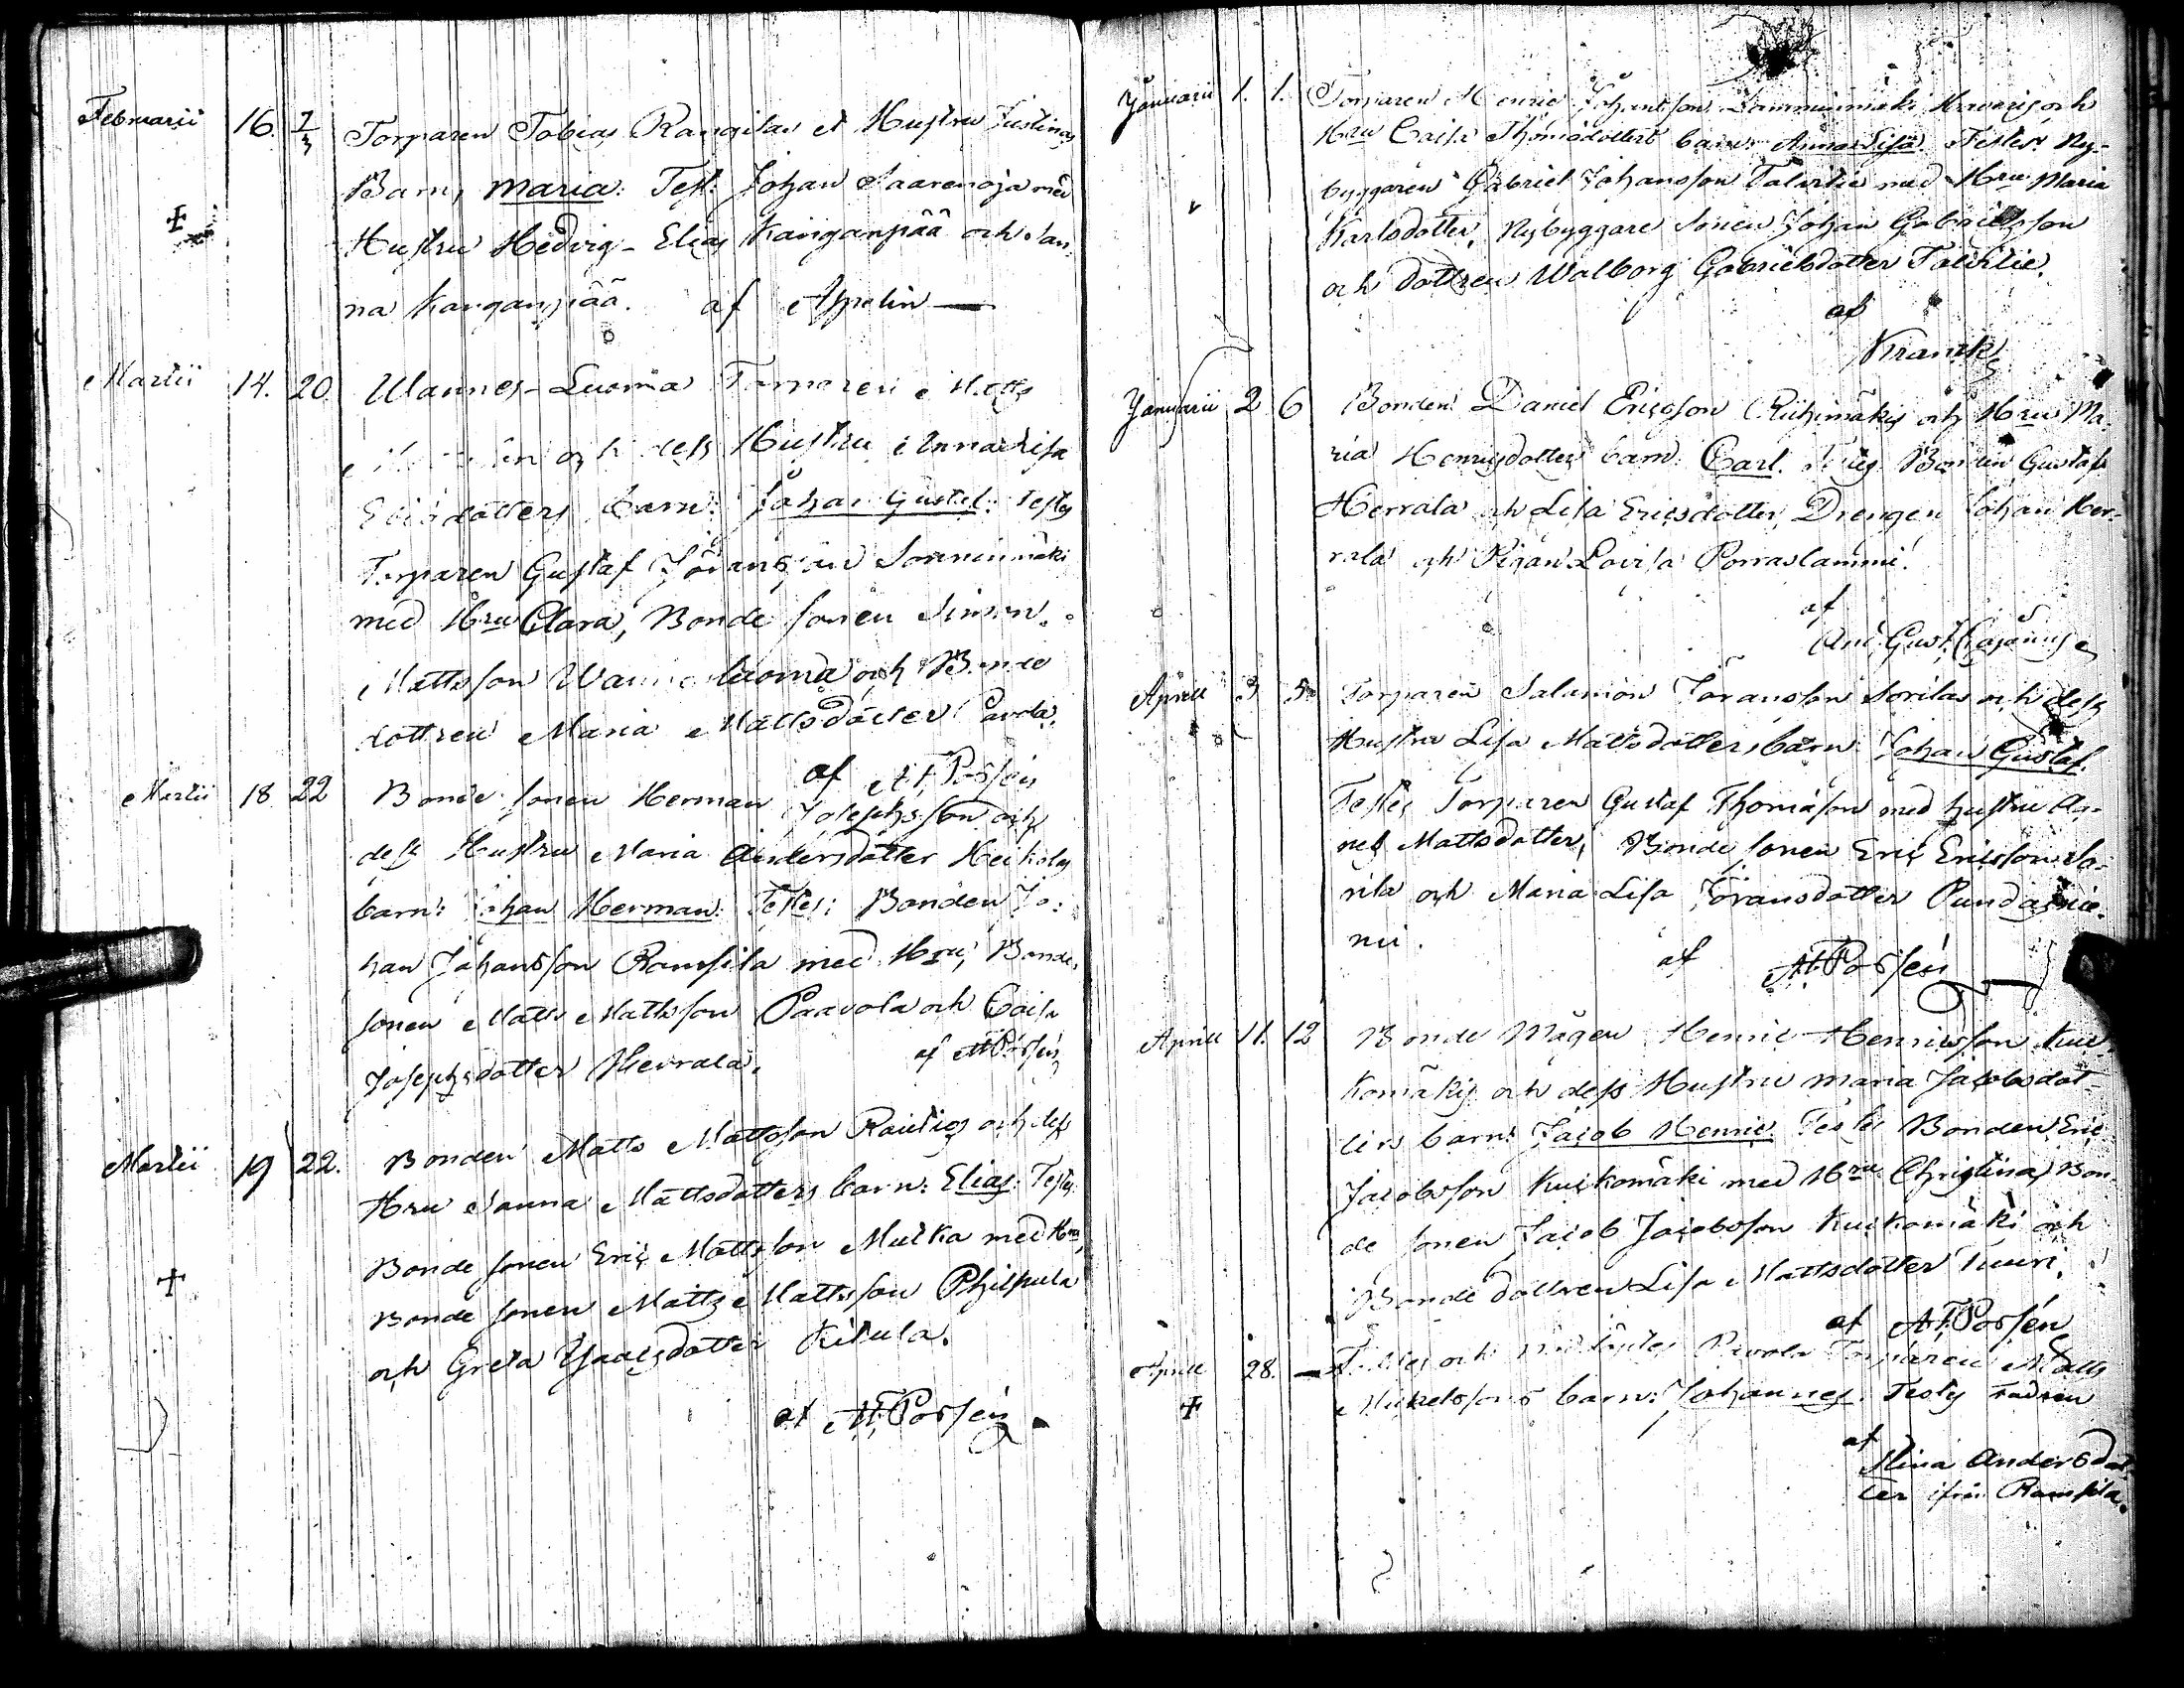 Februarii 16. 2/3 Torparen Tobias Rangilas et Hustru Justinas
Barn, Maria: Test: Johan Saarenoja med
Hustru Hedvig - Elias Kanganpää och San-
na Kanganpää. af Appelin
Martii 14. 20 Wannes-Luoma Torparen Matts
och dess Hustru Anna Lisa
dotters barn: Johan Gustaf: Testes
Torparen Gustaf Jöransson Sonninmäki
med Hru Clara, Bonde sonen Simon
Mattsson Wannesluoma och Bonde
dottren Maria Mattsdotter Pavola.
af A.F. Possén
Martii 18 22 Bonde sonen Herman Josephsson och
dess Hustru Maria Andersdotter Heikolas
barn: Johan Herman: Testes: Bonden Jo-
han Johansson Ramsila med Hru, Bonde
sonen Matts Mattsson Paavola och Caisa
Josephsdotter Herrala.
af A.F. Possén
Martii 19 22. Bonden Matts Mattsson Rautios och dess
Hru Sanna Mattsdotters barn: Elias: Testes
Bonde sonen Eric Mattsson Mulka med Hru,
Bonde sonen Matts Mattsson Philpula
och Greta Isacsdotter Kitula.
af A.F. Possén
Januarii 1. 1. Torparen Henric Johansson Lamminmäki Kravaris och
Hru Caisa Thomædotters barn: Anna Lisa. Testes: Ny-
byggaren Gabriel Johansson Talvitie med Hru Maria
Karlsdotter, Nybyggare sonen Johan Gabrielsson
och dottren Walborg Gabrielsdotter Talvitie.
af
Kranck
Januarii 2 6 Bonden Daniel Ericsson Riihimäkis och Hru Ma-
ria Henricsdotters barn: Carl. Bonden Gustaf
Herrala och Lisa Ericsdotter, Drengen Johan Her-
rala och Pigan Lovisa Porraslammi.
af
And. Gust. Cajanus
Aprill 3 5 Torparen Salamon Jöransson Sorilas och dess
Hustru Lisa Mattsdotters barn: Johan Gustaf.
Testes Torparen Gustaf Thomasson med hustru Ag-
nes Mattsdotter, Bonde sonen Eric Ericsson So-
rila och Maria Lisa Jöransdotter Pundarnie-
mi.
af A.F. Possén
Aprill 11. 12 Bonde Mågen Henric Henricsson Kui-
komäkis och dess Hustru Maria Jacobsdot-
ters barn: Jacob Henric: Testes Bonden Eric
Jacobsson Kuikomäki med Hru Christina, Bon-
de sonen Jacob Jacobsson Kuikomäki och
Bonde dottren Lisa Mattsdotter Tuuri.
af A.F. Possén
Aprill 28. — och Pavola Torparen Matts
Michelssons barn: Johannes. Testis Fadren
af
Stina Andersdot-
ter ifrån Ramsila.